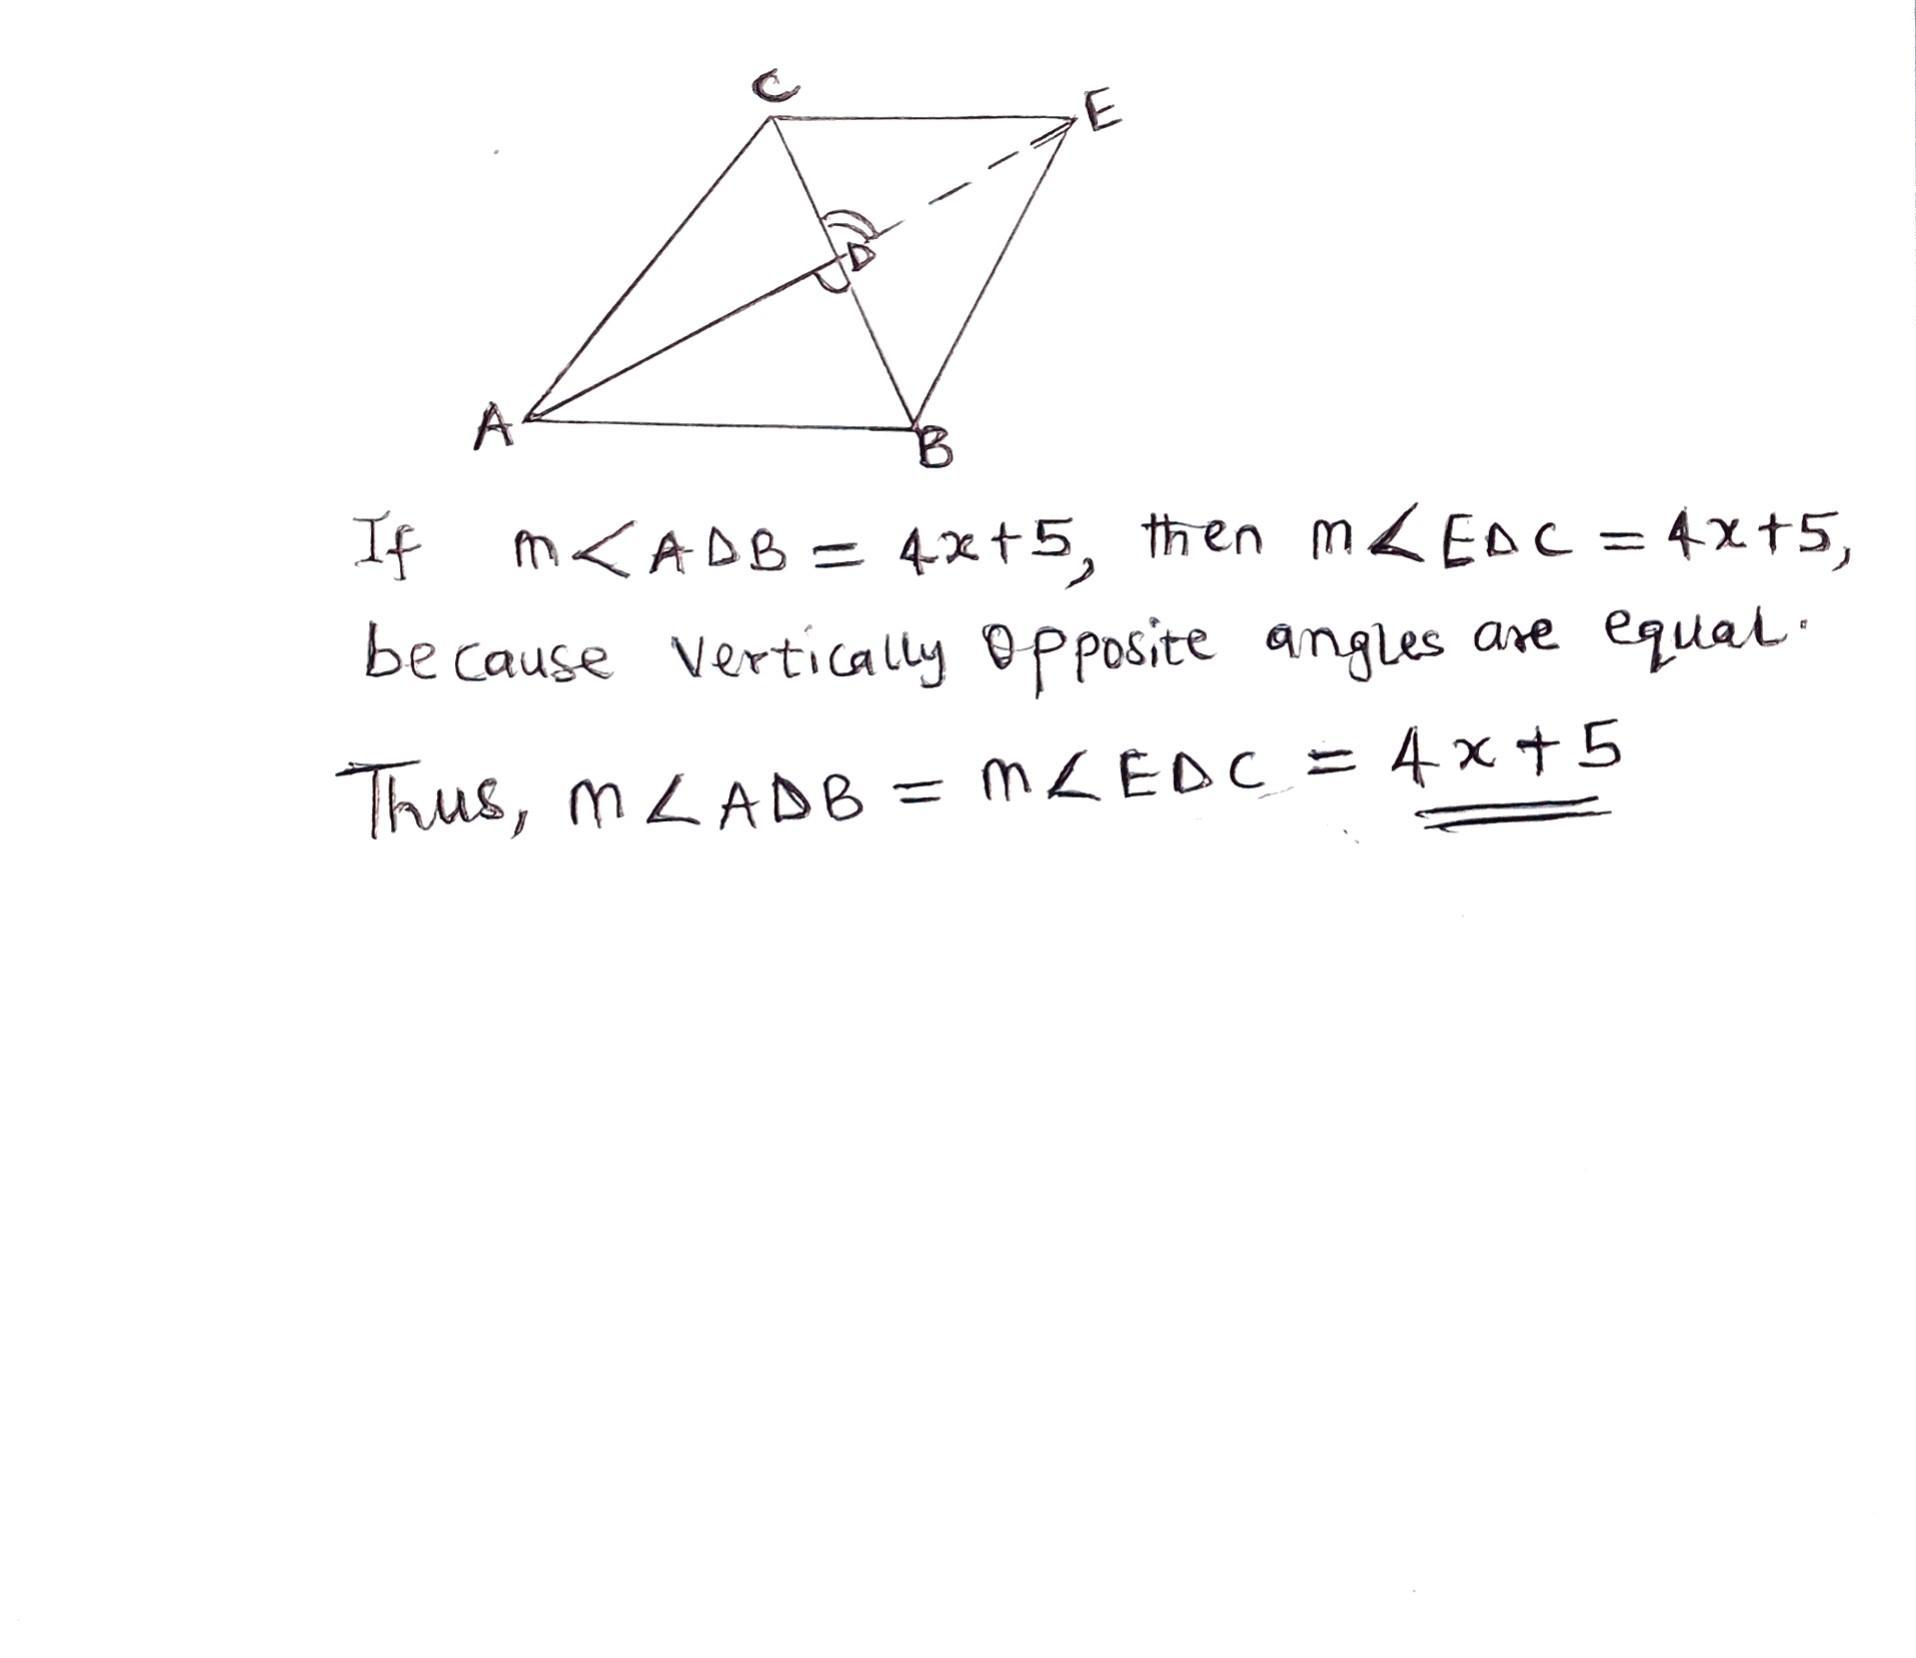 C
E
D
A
B
If m<ADB = 4x+5, then m∠EDC = 4x+5,
because vertically opposite angles are equal.
Thus, m∠ADB = m∠EDC = 4x+5